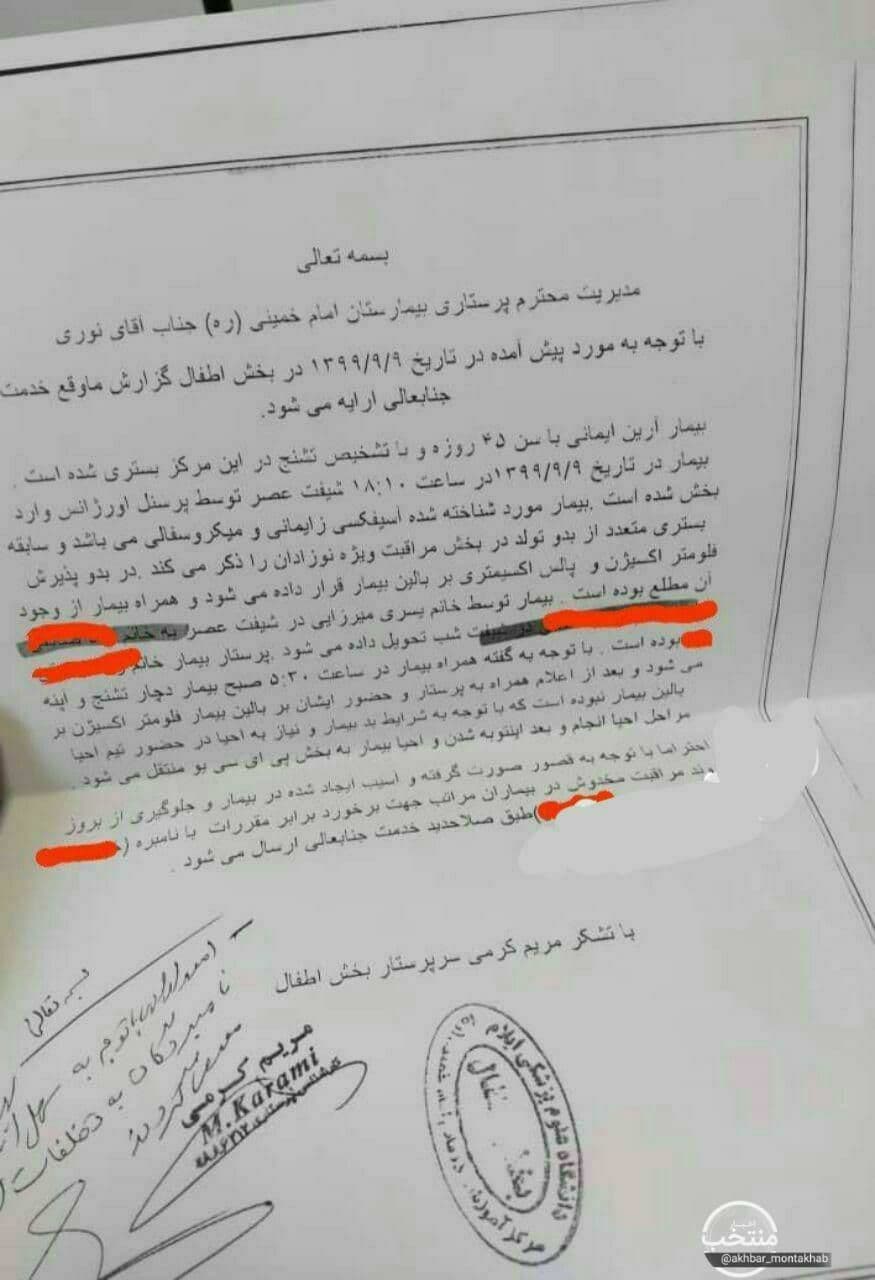 بسمه تعالی
مدیریت محترم پرستاری بیمارستان امام خمینی (ره) جناب آقای نوری
با توجه به مورد پیش آمده در تاریخ ۱۳۹۹/۹/۹ در بخش اطفال گزارش ماوقع خدمت
جنابعالی ارایه می شود.
بیمار آرین ایمانی با سن ۴۵ روزه و با تشخیص تشنج در این مرکز بستری شده است .
بیمار در تاریخ ۱۳۹۹/۹/۹در ساعت ۱۸:۱۰ شیفت عصر توسط پرسنل اورژانس وارد
بخش شده است .بیمار مورد شناخته شده آسیفکسی زایمانی و میکروسفالی می باشد و سابقه
بستری متعدد از بدو تولد در بخش مراقبت ویژه نوزادان را ذکر می کند .در بدو پذیرش
فلومتر اکسیژن و پالس اکسیمتری بر بالین بیمار قرار داده می شود و همراه بیمار از وجود
آن مطلع بوده است . بیمار توسط خانم یسری میرزایی در شیفت عصر به خانم
در شیفت شب تحویل داده می شود .پرستار بیمار خانم
بوده است . با توجه به گفته همراه بیمار در ساعت ۵:۳۰ صبح بیمار دچار تشنج و اپنه
می شود و بعد از اعلام همراه به پرستار و حضور ایشان بر بالین بیمار فلومتر اکسیژن بر
بالین بیمار نبوده است که با توجه به شرایط بد بیمار و نیاز به احیا در حضور تیم احیا
مراحل احیا انجام و بعد اینتوبه شدن و احیا بیمار به بخش پی ای سی یو منتقل می شود .
احتراما با توجه به قصور صورت گرفته و آسیب ایجاد شده در بیمار و جلوگیری از بروز
روند مراقبت مخدوش در بیماران مراتب جهت برخورد برابر مقررات با نامبره (
)طبق صلاحدید خدمت جنابعالی ارسال می شود .
با تشکر مریم کرمی سرپرستار بخش اطفال
بسمه تعالی
با توجه به
نامبردگان به تخلفات
معرفی گردند
مریم کرمی
M.Karami
کارشناس پرستاری
دانشگاه علوم پزشکی ایلام
بخش اطفال
مرکز آموزشی درمانی
اخبار
منتخب
@akhbar_montakhab